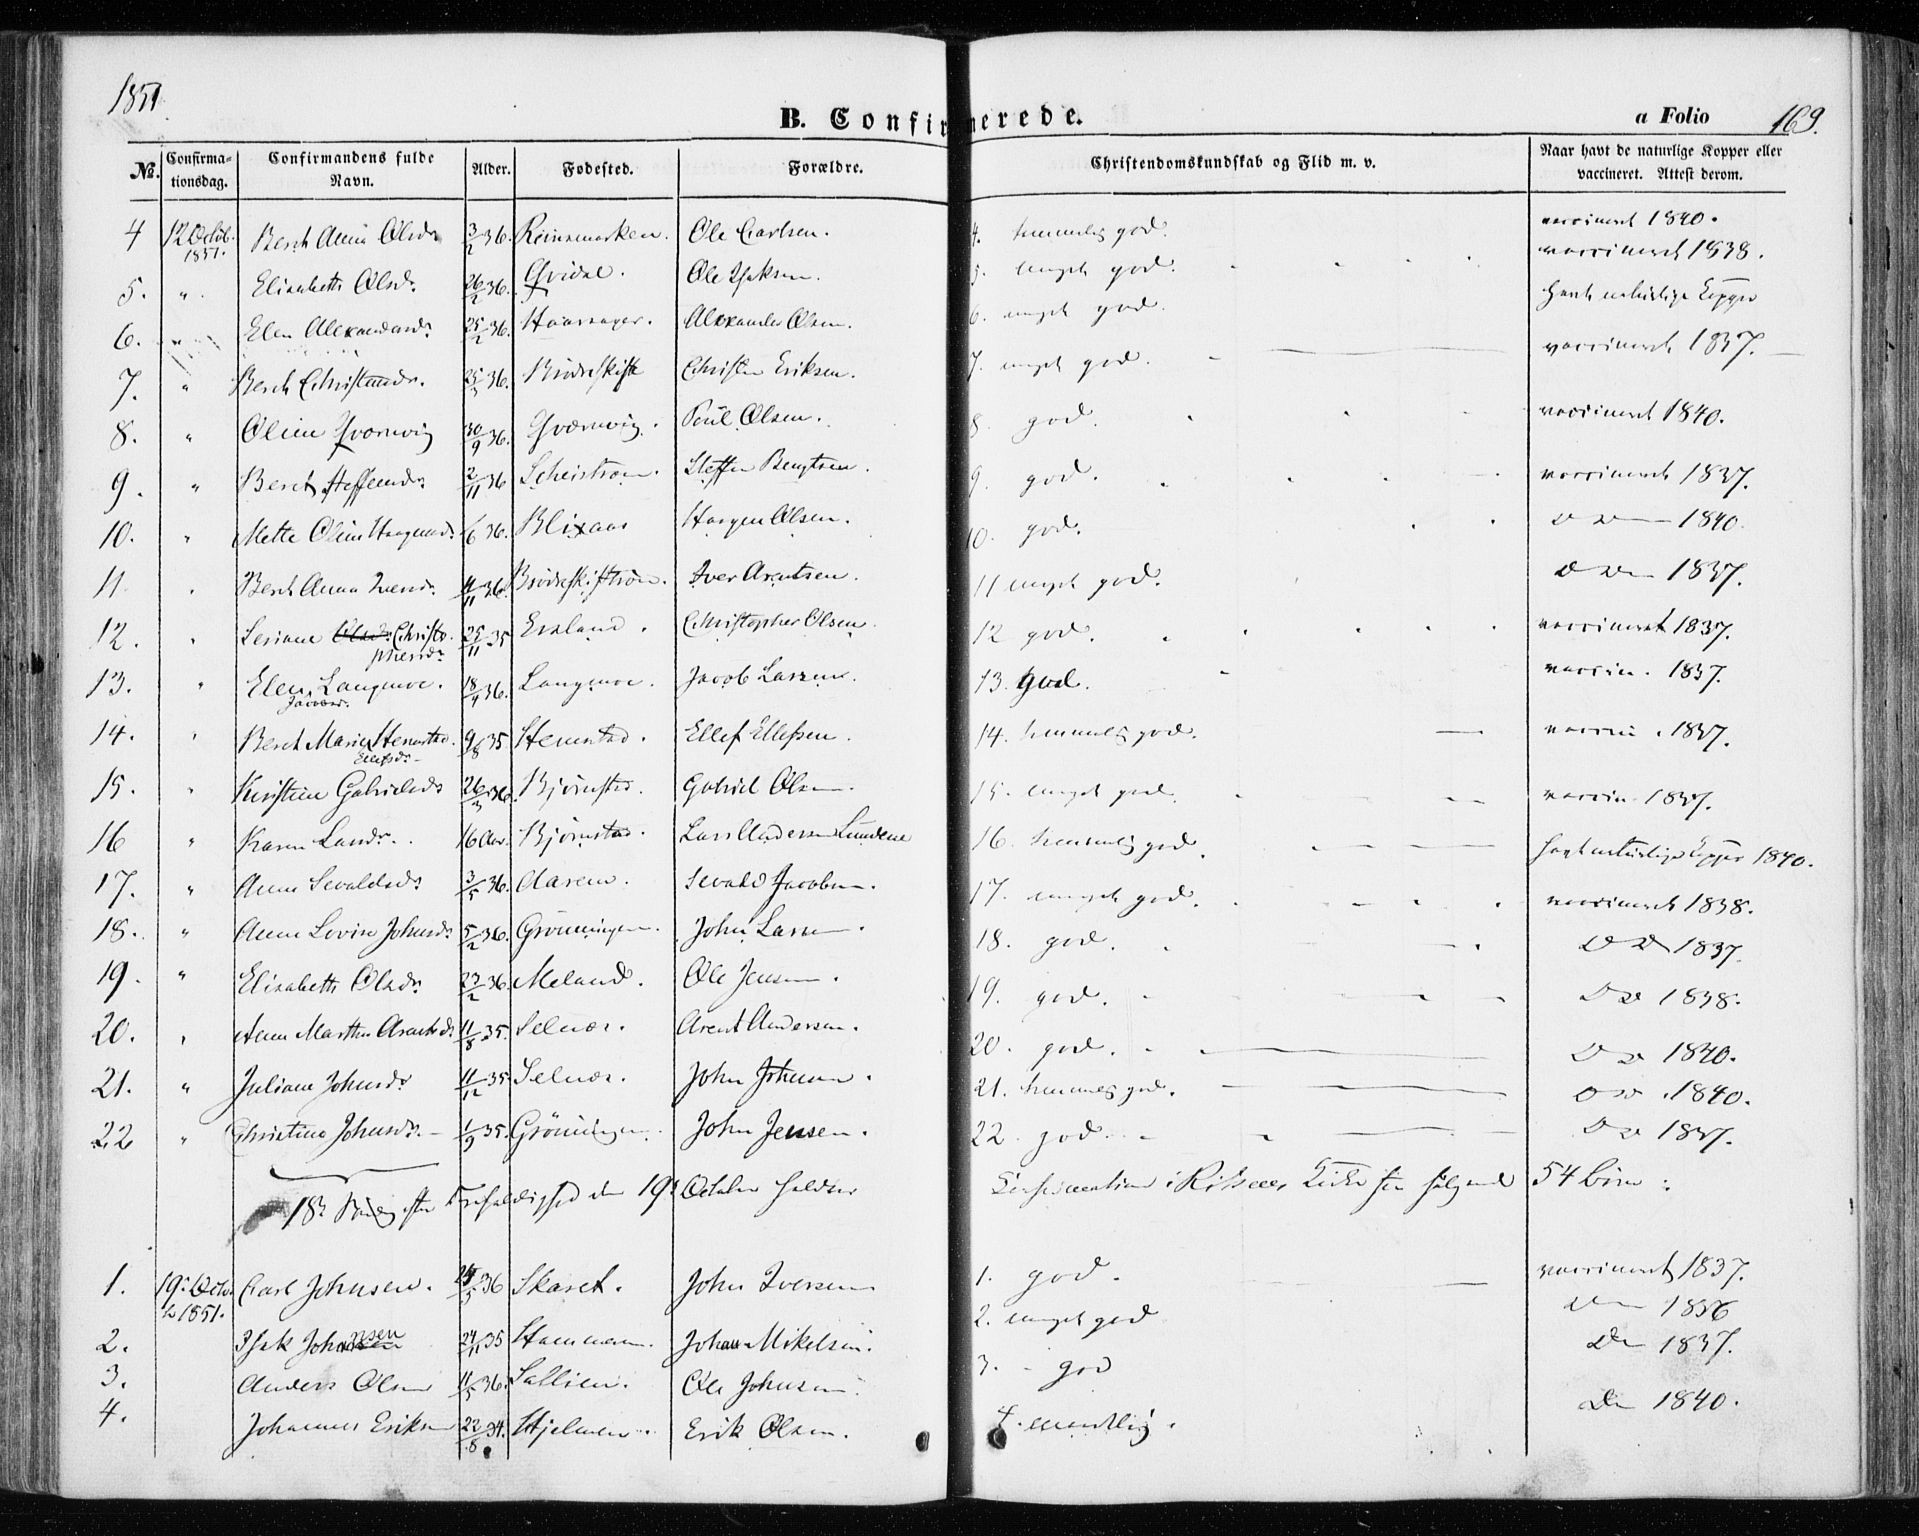 1851
B. Confirmerede.
a Folio 169.
No. Confirmationsdag. Confirmandens fulde Navn. Alder. Fødested. Forældre. Christendomskundskab og Flid m. v. Naar havt de naturlige Kopper eller vaccineret. Attest derom.
4 12 Octob. 1851. Beret Anna Olsdr 3/2 36. Reinsmarken. Ole Carlsen. 4. temmelig god. vaccineret 1840.
5. " Elisabeth Olsdr. 26/2 36. Ole Isaksen. 5. meget god. vaccineret 1838.
6. " Elen Alexandersdr. 25/2 36. Haarsager. Alexander Olsen. 6. meget god. havt naturlige Kopper
7. " Beret Christensdr. 25/3 36. Christen Eriksen. 7. meget god. vaccineret 1837.
8. " Oline Qvernvig 30/9 36. Qvernvig. Poul Olsen. 8. god. vaccineret 1840.
9. " Beret Steffensdr 2/11 36 Steffen Bengtsen. 9. god. vaccineret 1837.
10. " Mette Oline Haagensdr 36. Blixaas Haagen Olsen. 10. god. 1840.
11. Beret Anna Iversdr. 4/11 36. Iver Arentsen. 11 meget god. 1837.
12. " Seriane Christophersdr 25/11 35 Christopher Olsen. 12 god. vaccineret 1837.
13. " Elen Jacobsdr. Langmoe. 18/9 36. Langmoe. Jacob Larsen. 13. god. vaccin. 1837.
14. " Beret Marie Ellefsdr Stemstad. 9/8 35 Stemstad. Ellef Ellefsen. 14. temmelig god. vaccin. 1837.
15. " Kirstine Gabrielsdr 26/3 36 Bjørnstad. Gabriel Olsen. 15. meget god. vaccin. 1837.
16 " Karen Larsdr. 16 Aar. Bjørnstad. Lars Andersen Lundene 16. temmelig god. havt naturlige Kopper 1840.
17. " Anne Sevaldsdr 3/5 36. Aarem. Sevald Jacobsen. 17. meget god. vaccineret 1838.
18. " Anne Lovise Johnsdr 5/2 36. Grønningen. John Larsen. 18. god. 1837.
19. " Elisabeth Olsdr. 36. Meland. Ole Jensen. 19. god. 1838.
20. " Anne Marthe Arentsdr 11/8 35. Selnæs. Arent Andersen. 20. god. 1840.
21. " Juliane Johnsdr 11/12 35 Selnæs. John Johnsen. 21. temmelig god. 1840.
22 " Christine Johnsdr. 1/9 35. Grønningen. John Jensen. 22. god. 1837.
18de Søndag efter Trefoldighed den 19de October holdtes Confirmation i Rissens Kirke for følgende 54 Børn:
1. 19. Octob. 1851. Carl Johnsen. 36 Skaret. John Iversen 1. god. vaccineret 1837.
2. Isak Johansen 24/11 35 Johan Mikelsen. 2. meget god 1836
3. Anders Olsen 11/5 36. Sallien. Ole Johnsen. 3. god 1837.
4. Johannes Eriksen 22/8 34. Hjelmen. Erik Olsen. 4. maadelig. 1840.